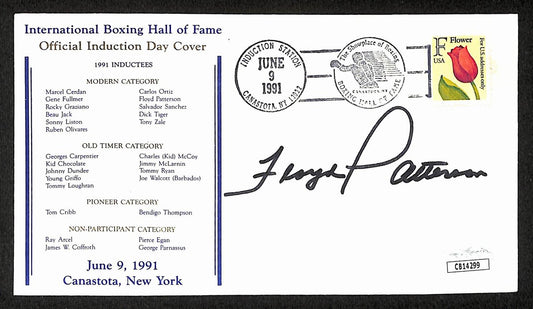 International Boxing Hall of Fame
Official Induction Day Cover
1991 INDUCTEES
MODERN CATEGORY
Marcel Cerdan Carlos Ortiz
Gene Fullmer Floyd Patterson
Rocky Graziano Salvador Sanchez
Beau Jack Dick Tiger
Sonny Liston Tony Zale
Ruben Olivares
OLD TIMER CATEGORY
Georges Carpentier Charles (Kid) McCoy
Kid Chocolate Jimmy McLarnin
Johnny Dundee Tommy Ryan
Young Griffo Joe Walcott (Barbados)
Tommy Loughran
PIONEER CATEGORY
Tom Cribb Bendigo Thompson
NON-PARTICIPANT CATEGORY
Ray Arcel Pierce Egan
James W. Coffroth George Parnassus
June 9, 1991
Canastota, New York
INDUCTION STATION
JUNE
9
1991
CANASTOTA, NY 13032
The Showplace of Boxing
CANASTOTA, NY
BOXING HALL OF FAME
F Flower
USA
For U.S. addresses only
Floyd Patterson
CB14299